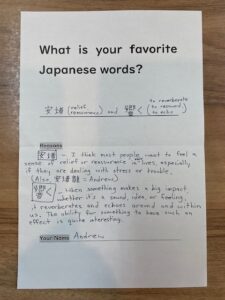 What is your favorite
Japanese words?
安堵 (relief reassurance) and 響く (to reverberate to resound to echo)
Reasons
安堵 - I think most people want to feel a
sense of relief or reassurance at times, especially
if they are dealing with stress or trouble.
(Also, 安堵龍 = Andrew)
響く - When something makes a big impact,
whether it's a sound, idea, or feeling,
it reverberates and echoes around and within
us. The ability for something to have such an
effect is quite interesting.
Your Name Andrew